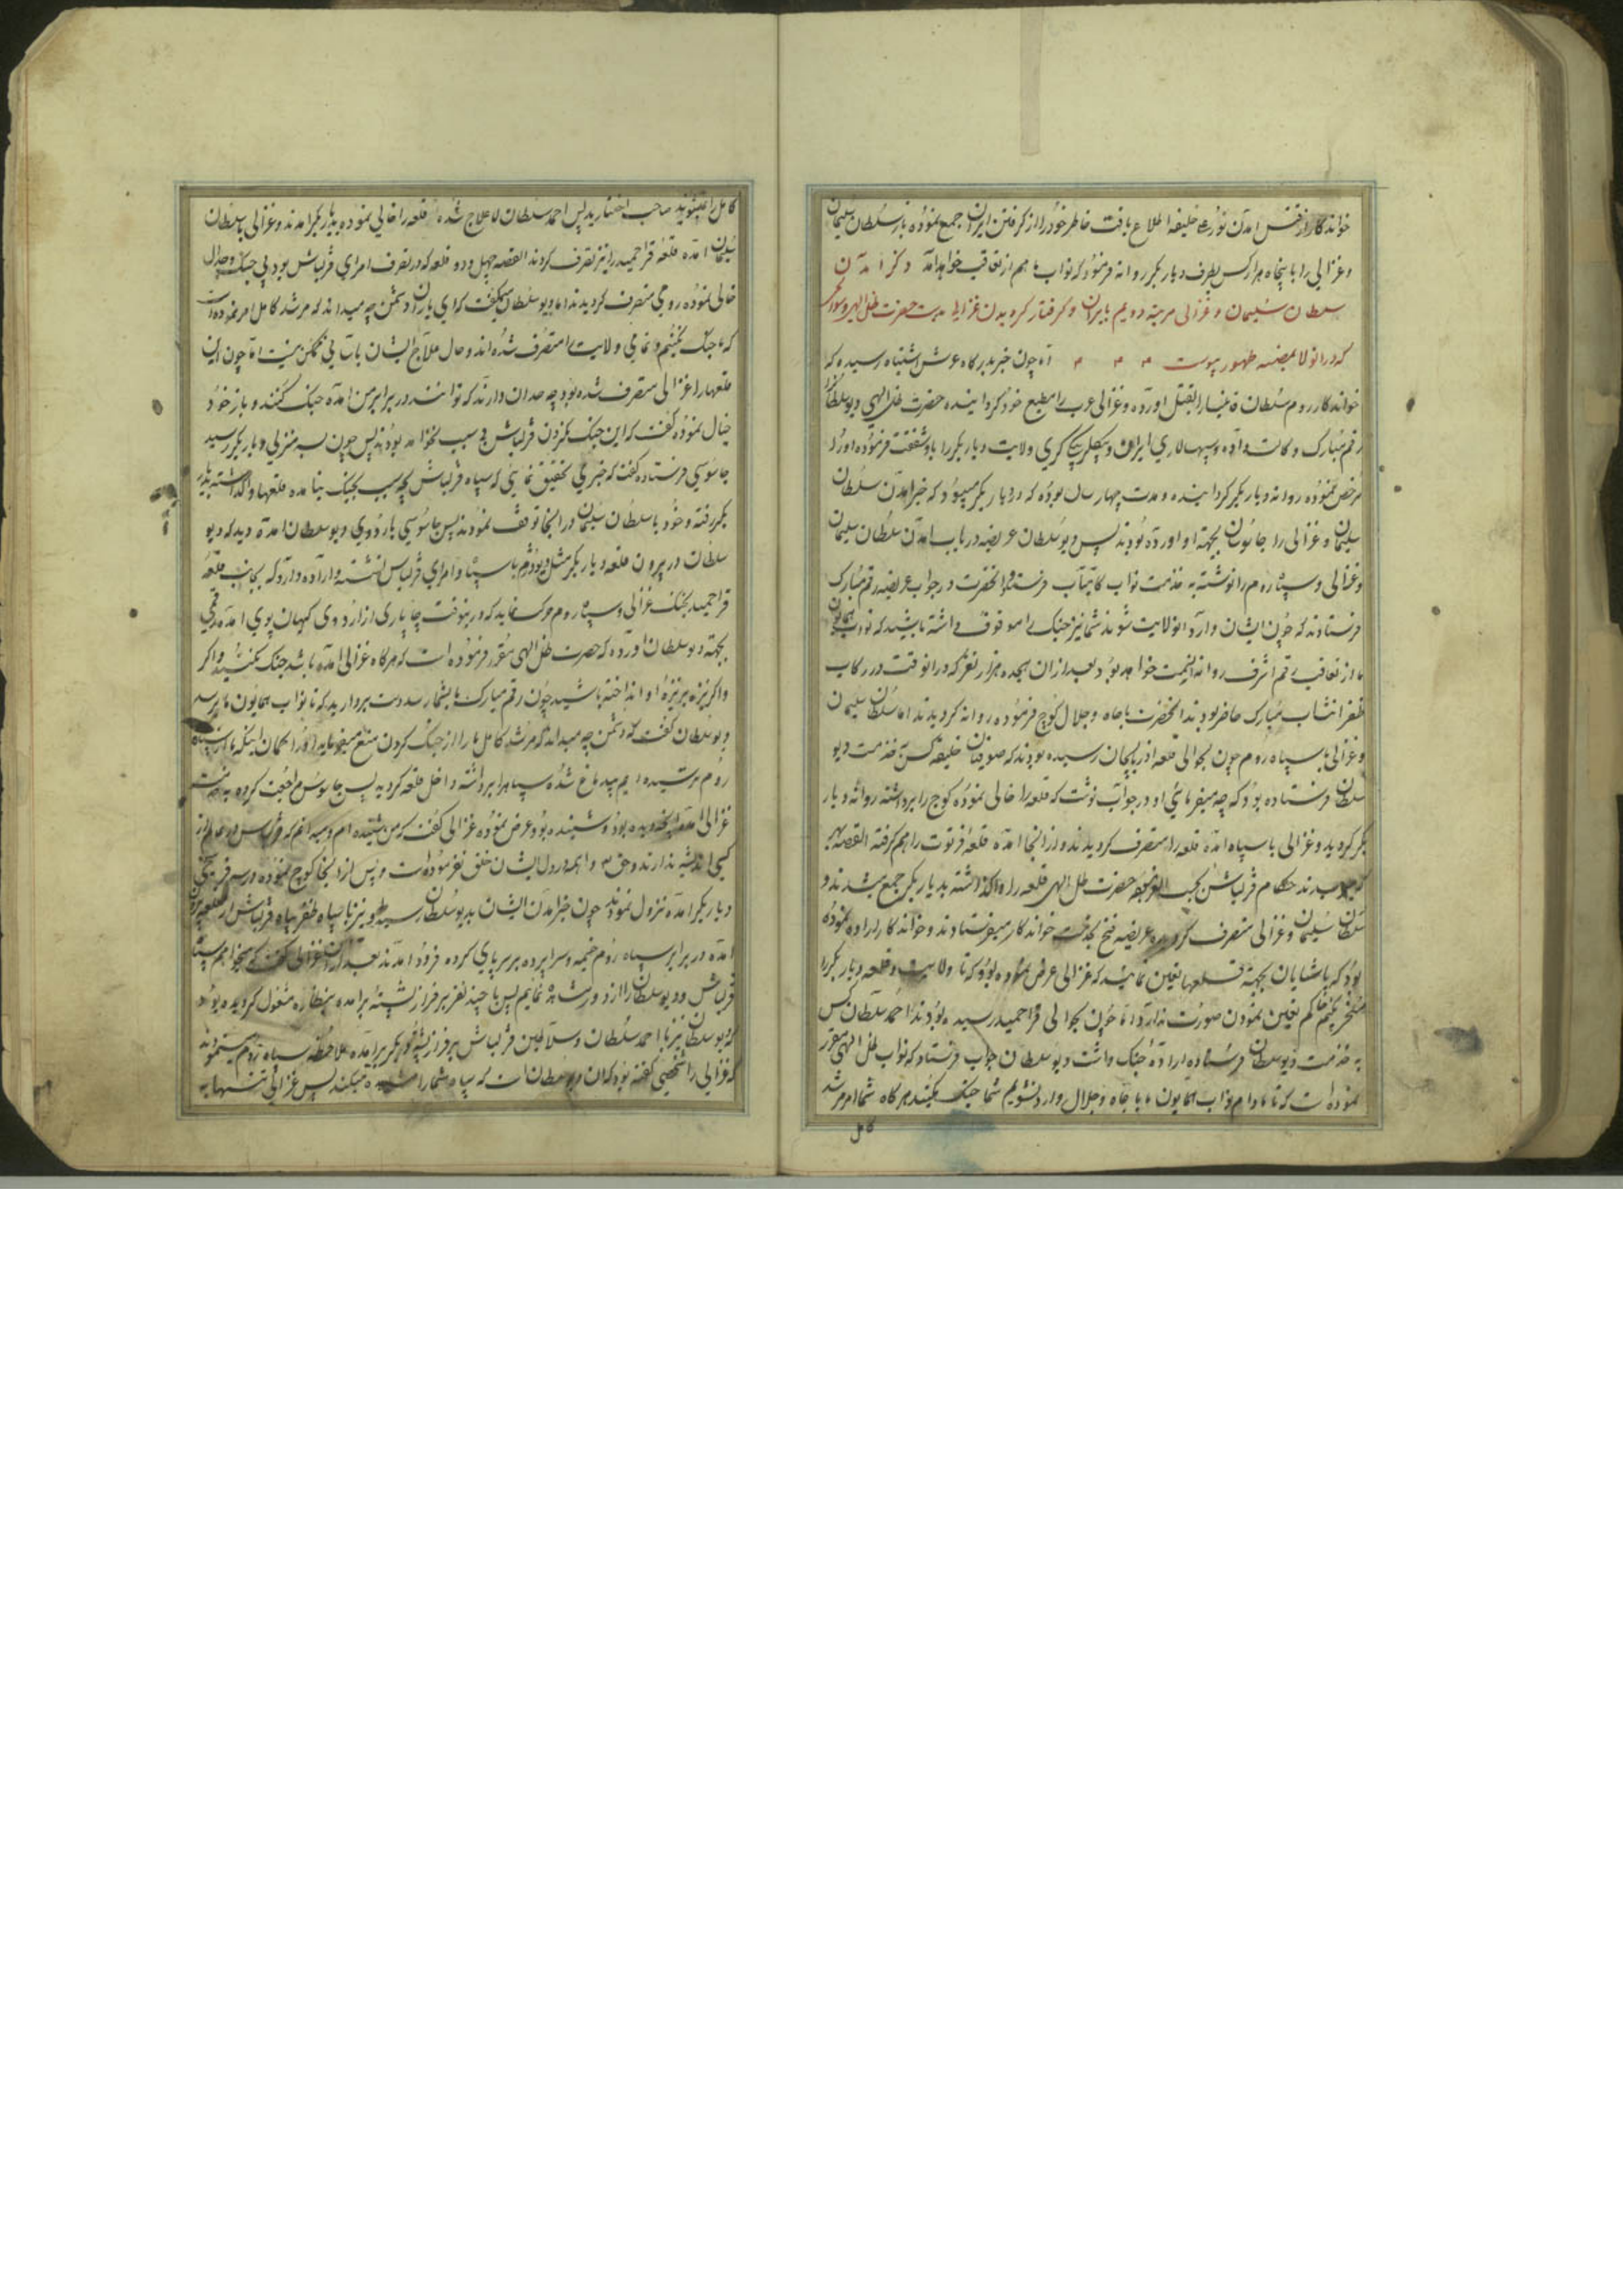 خواندکار از فتنس امدن نورعلی خلیفه اطلاع یافت خاطر خود را از گرفتن ایران جمع نموده باز سلطان سلیمان
و غزالی را با پنجاه هزار کس بطرف دیار بکر روانه فرمود که نواب ما هم از تعاقب خواهد آمد ذکر آمدن
سلطان سلیمان و غزالی مرتبه دویم بایران و گرفتار گردیدن غزالی بدست حضرت ظل الهی و سوانح
که درانولا بمنصه ظهور پیوست اما چون خبر بدرگاه عرش اشتباه رسیده که
خواندکار روم سلطان را بقتل اورده و غزالی عرب را مطیع خود گردانیده حضرت ظل الهی دیو سلطان را
رقم مبارک و کالت داده و سپهسالاری ایران و بیگلربیگی گری ولایت دیار بکر را باو شفقت فرموده او را
مرخص نموده روانه دیار بکر گردانیده و مدت چهار سال بوده که در دیار بکر میبود که خبر امدن سلطان
سلیمان و غزالی را جاسوسان بجهته او اورده بودند پس دیو سلطان عریضه در باب امدن سلطان سلیمان
و غزالی و سپاه روم را نوشته به خدمت نواب کامیاب فرستاد و انحضرت در جواب عریضه رقم مبارک
فرستادند که چون ایشان وارد انولایت شوند شما نیز جنک را موقوف داشته باشید که نواب همایون
ما از تعاقب رقم اشرف روانه انسمت خواهد بود بعد ازان هجده هزار نفر که درانوقت در رکاب
ظفر انتساب مبارک حاضر بودند انحضرت باجاه و جلال کوچ فرموده روانه گردیدند اما سلطان سلیمان
و غزالی با سپاه روم چون بحوالی قلعه اذربایجان رسیده بودند که صوفیان خلیفه کس به خدمت دیو
سلطان فرستاده بود که چه میفرمائی او در جواب نوشت که قلعه را خالی نموده کوچ را برداشته روانه دیار
بکر گردید و غزالی با سپاه امده قلعه را متصرف گردیدند و از انجا امده قلعه فرتوت را هم گرفته القصه بهر
قلعه میرسیدند حکام قزلباش بموجب فرموده حضرت ظل الهی قلعه را واگذاشته بدیار بکر جمع میشدند و
سلطان سلیمان و غزالی متصرف گردیده عریضه فتح بخدمت خواندکار میفرستادند و خواندکار اراده نموده
بود که پاشایان بجهته قلعها تعین نماید که غزالی عرض نموده بود که تا ولایت و قلعه دیار بکر را
مسخر نکنم حاکم تعین نمودن صورت ندارد اما چون بحوالی قراحمید رسیده بودند احمد سلطان کس
به خدمت دیو سلطان فرستاده اراده جنک داشت دیو سلطان جواب فرستاد که نواب ظل الهی مقرر
نموده است که تا مادام نواب همایون ما باجاه و جلال وارد نشویم شما جنک نکنید هرگاه شما امر مرشد
کامل
کامل را میشنوید صاحب اختیارید پس احمد سلطان لاعلاج شده قلعه را خالی نموده بدیار بکر امدند و غزالی با سلطان
سلیمان امده قلعه قراحمید را نیز تصرف کردند القصه چهل و دو قلعه که در تصرف امرای قزلباش بود بی جنک و جدال
خالی نموده رومی متصرف گردیدند اما دیو سلطان میگفت که ای یاران دشمن چه میداند که مرشد کامل امر نموده است
که ما جنک نکنیم و تمامی ولایت را متصرف شده اند و حال علاج ایشان باسانی ممکن نیست اما چون این
قلعها را غزالی متصرف شده بود چه حد ان دارند که توانند در برابر من امده جنک کنند و باز خود
خیال نموده گفت که این جنک نکردن قزلباش بی سبب نخواهد بود پس چون به منزلی دیار بکر رسید
جاسوسی فرستاده گفت که خبر می تحقیق نمائی که سپاه قزلباش بچه سبب بجنک نیامده قلعها را گذاشته بدیار
بکر رفته و خود با سلطان سلیمان در انجا توقف نمودند پس جاسوسی باردوی دیو سلطان امده دید که دیو
سلطان در بیرون قلعه دیار بکر با سپاه و امرای قزلباش نشسته و اراده دارد که بجانب قلعه
قراحمید بجنک غزالی و سپاه روم حرکت نماید که درینوقت چاپاری از اردوی کیهان پوی امده رقمی
بجهته دیو سلطان اورده که حضرت ظل الهی مقرر فرموده است که هرگاه غزالی امده باشد جنک نکنید و اگر
و اگر نیزه بر نیزه او انداخته باشید چون رقم مبارک ما بشما رسد دست بردارید که تا نواب همایون ما برسد
دیو سلطان گفت که دشمن چه میداند که مرشد کامل ما را از جنک کردن منع میفرماید انها را گمان اینکه ما از سپاه
روم ترسیده ایم پس سپاه را برداشته داخل قلعه گردید پس جاسوس مراجعت کرده به خدمت
غزالی امده انچه دیده بود و شنیده بود عرض نموده غزالی گفت که من شنیده ام و میدانم که قزلباش در عالم از
کسی اندیشه ندارند و حق و همه در دل ایشان خلق نفرموده است و پس از انجا کوچ نموده در سه فرسخی
دیار بکر امده نزول نمودند چون خبر امدن ایشان بدیو سلطان رسید او نیز با سپاه ظفر پناه قزلباش از قلعه بیرون
امده در برابر سپاه روم خیمه و سراپرده بر سر پای کرده فرود امدند بعد ازان غزالی گفت که میخواهم سپاه
قزلباش و دیو سلطان را از دور مشاهده نمایم پس با چند نفر بر فراز پشته برامده بنظاره مشغول گردیده بود
که دیو سلطان نیز با احمد سلطان و سلاطین قزلباش بر فراز پشته دیگر برامده ملاحظه سپاه روم مینمودند
که غزالی را شخصی گفته بود که ان دیو سلطان است که سپاه شما را مشاهده میکند پس غزالی تنها به